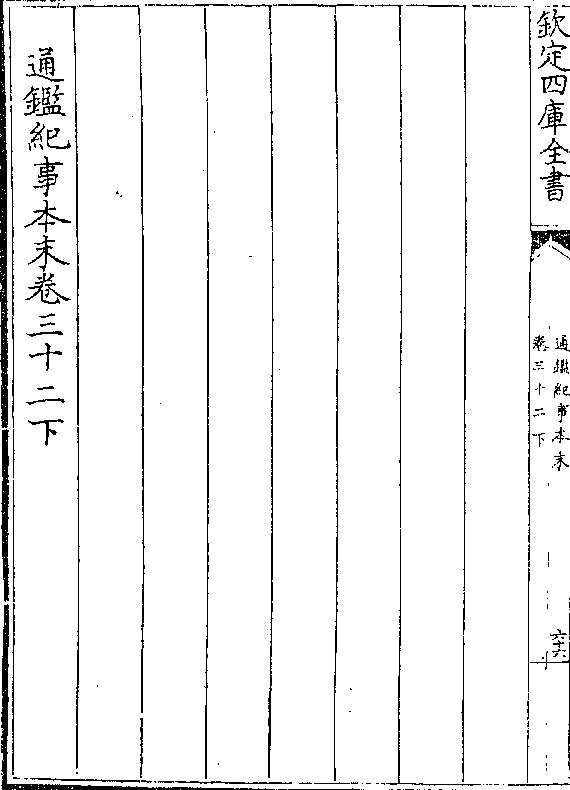 欽定四庫全書
通鑑紀事本末
卷三十二下
六十六
通鑑紀事本末卷三十二下